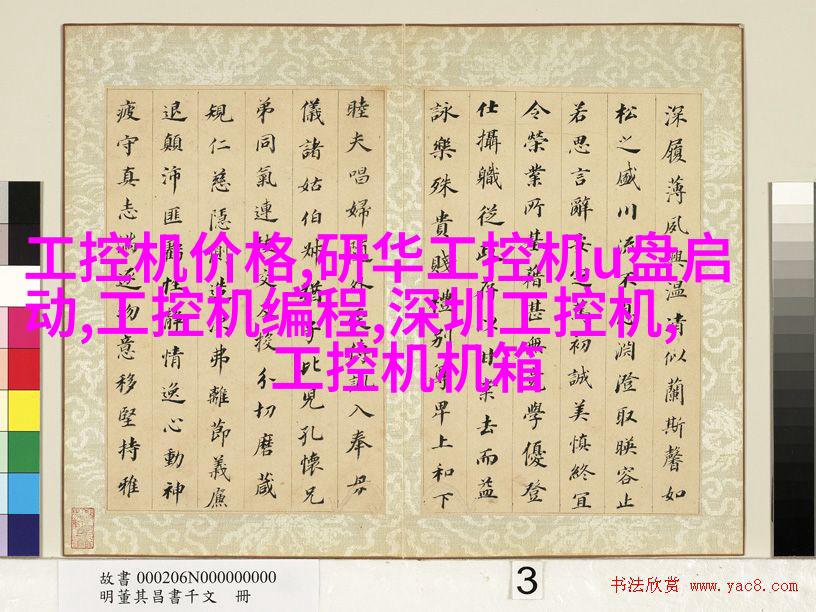 深履薄夙興溫凊似蘭斯馨如
松之盛川流不息淵澄取暎容止
若思言辭安定篤初誠美慎終宜
令榮業所基籍甚無竟學優登
仕攝職從政存以甘棠去而益
詠樂殊貴賤禮別尊卑上和下
睦夫唱婦隨外受傅訓入奉母
儀諸姑伯叔猶子比兒孔懷兄
弟同氣連枝交友投分切磨箴
規仁慈隱惻造次弗離節義廉
退顛沛匪虧性靜情逸心動神
疲守真志滿逐物意移堅持雅
工控机价格,研华工控机u盘启
动,工控机编程,深圳工控机,
工控机机箱
故書 000206N000000000
明董其昌書千文 冊
3
书法欣赏 www.yac8.com